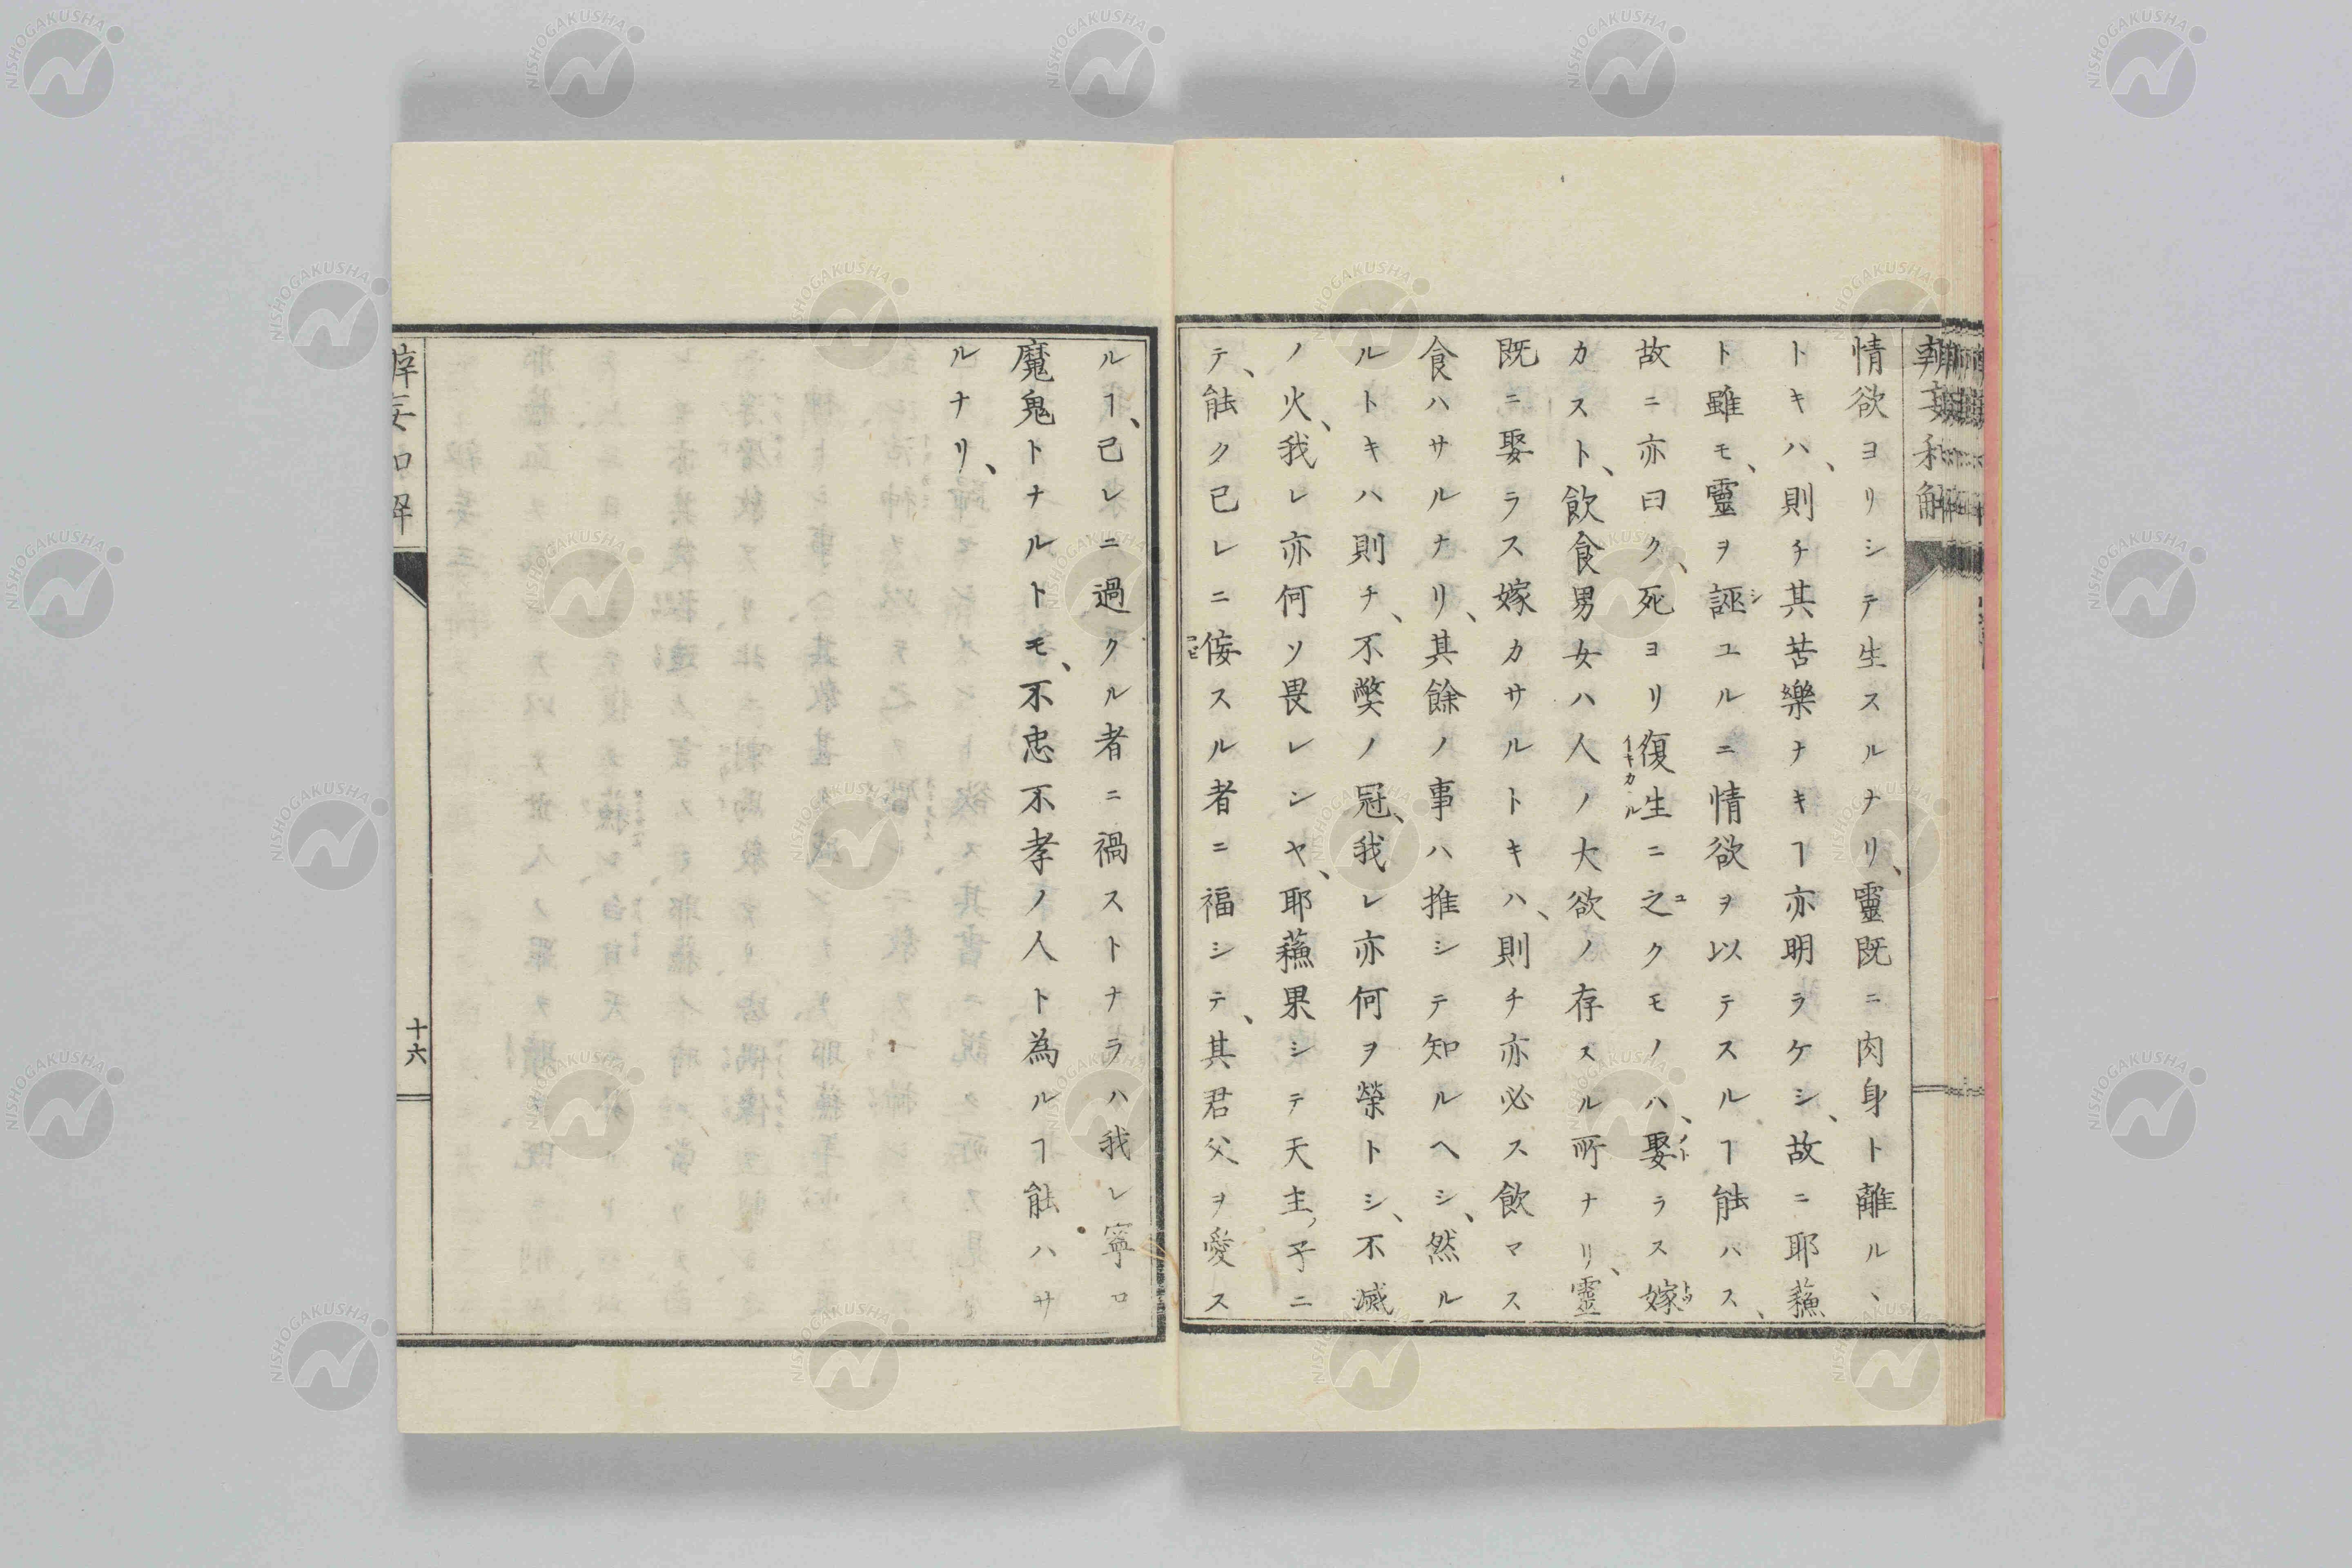 情欲ヨリシテ生スルナリ、靈既ニ肉身ト離ルヽ
トキハ、則チ其苦樂ナキヿ亦明ラケシ、故ニ耶蘓
ト雖モ、靈ヲ誣シユルニ情欲ヲ以テスルヿ能ハス、
故ニ亦曰ク、死ヨリ復生イキカヘルニ之ユクモノハ、娶メトラス嫁トツ
カスト、飲食男女ハ人ノ大欲ノ存スル所ナリ、靈
既ニ娶ラス嫁カサルトキハ、則チ亦必ス飲マス
食ハサルナリ、其餘ノ事ハ推シテ知ルヘシ、然ル
ルトキハ則チ、不獘ノ冠、我レ亦何ヲ榮トシ、不滅
ノ火、我レ亦何ソ畏レンヤ、耶蘓果シテ天主ノ子ニ
テ、能ク己レニ侫コビスル者ニ福シテ、其君父ヲ愛ス
ルヿ、己レニ過クル者ニ禍ストナラハ我レ寧ロ
魔鬼トナルトモ、不忠不孝ノ人ト為ルヿ能ハサ
ルナリ、
十六
NISHOGAKUSHA